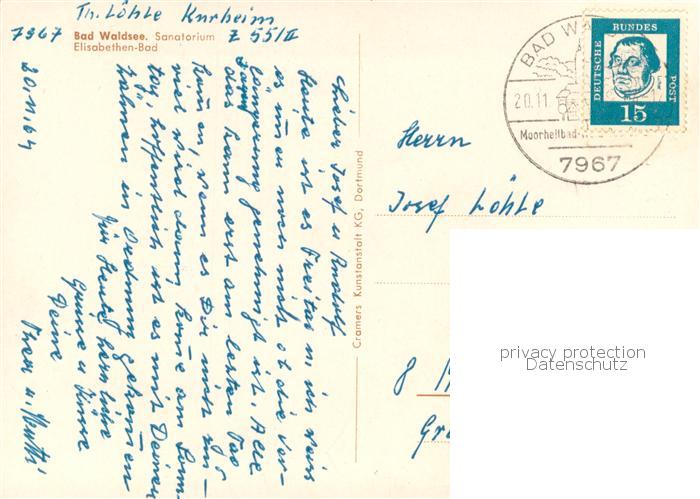 Th. Löhle Kurheim
7967 Bad Waldsee. Sanatorium Z 55/II
Elisabethen-Bad
20.11.64
Lieber Josef u Rudolf
Heute ist es Freitag u. ich weis
es immer noch nicht ob die Ver-
längerung genehmigt ist. Also
das kann erst am letzten Tag
viel wird dann komme am Sonn
tag, hoffentlich ist es mit Deinen
Zähnen in Ordnung gekommen
Für Heute herzliche
Grüsse u Küsse
Deine
Cramers Kunstanstalt KG, Dortmund
BAD WA
20.11.
Moorheilbad
7967
DEUTSCHE BUNDES POST
15
Herrn
Josef Löhle
8
Gr
privacy protection
Datenschutz